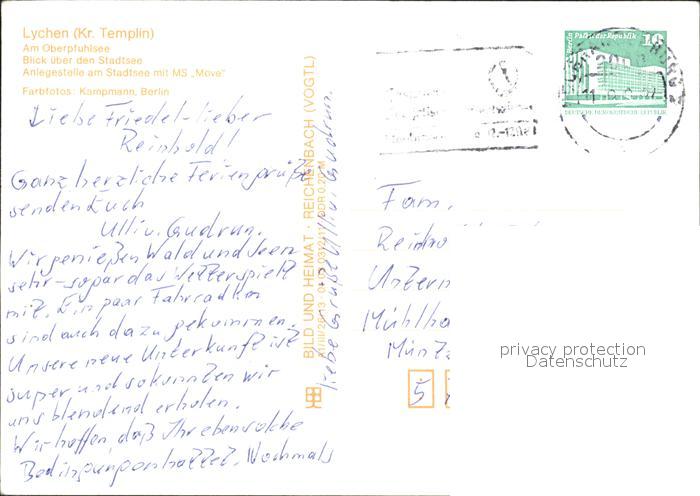 Lychen (Kr. Templin)
Am Oberpfuhlsee
Blick über den Stadtsee
Anlegestelle am Stadtsee mit MS „Möve"
Farbfotos: Kampmann, Berlin
Liebe Friedel - lieber
Reinhold!
Ganz herzliche Feriengrüße
senden Euch
Ulli u. Gudrun.
Wir genießen Wald und Seen
sehr - sogar das Wetter spielt
mit. Ein paar Fahrradkm
sind auch dazu gekommen.
Unsere neue Unterkunft ist
super und so konnten wir
uns blendend erholen.
Wir hoffen, daß Ihr ebensolche
Bedingungen hattet. Nochmals
liebe Grüße Ulli u. Gudrun.
BILD UND HEIMAT · REICHENBACH (VOGTL)
Berlin Palast der Republik 10
DEUTSCHE DEMOKRATISCHE REPUBLIK
Fam.
Reinho
Untern
Mühlha
Müntz
5
privacy protection
Datenschutz